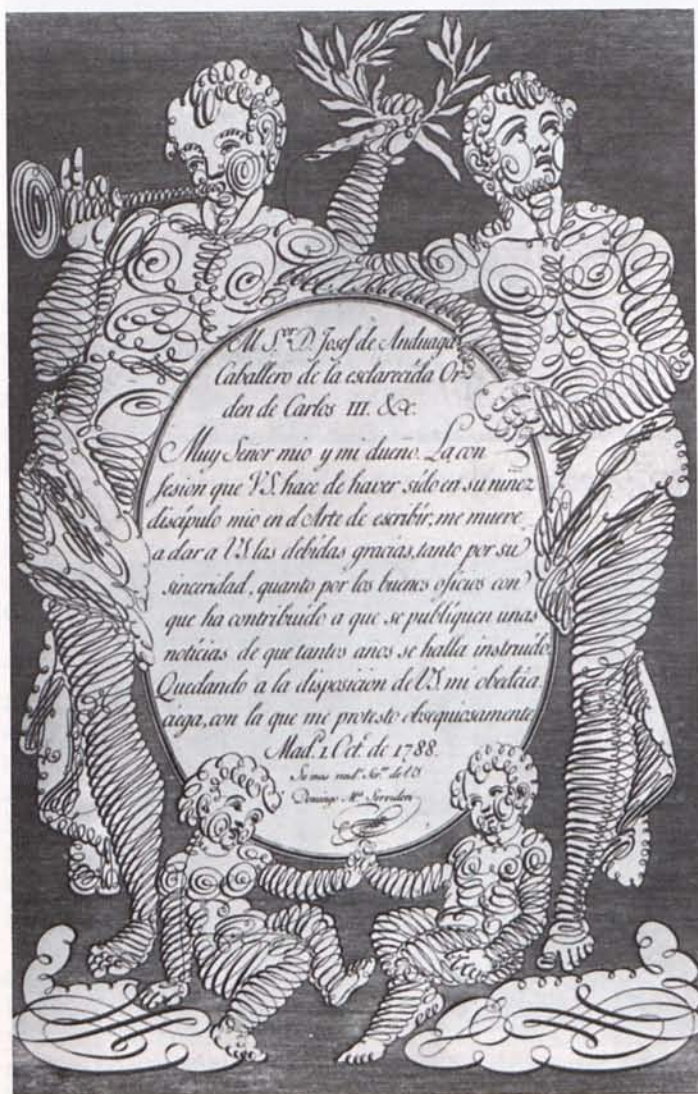 Al S.or D. Josef de Anduaga
Caballero de la esclarecida Or-
den de Carlos III. &c.
Muy Señor mio y mi dueño. La con
fesion que V.S. hace de haver sido en su niñez
discípulo mio en el Arte de escribir, me mueve
a dar a V.S. las debidas gracias, tanto por su
sinceridad, quanto por los buenos oficios con
que ha contribuido a que se publíquen unas
noticias de que tantos años se halla instruido.
Quedando a la disposicion de V.S. mi obed.cia
ciega, con la que me protesto obsequiosamente
Mad. 1. Oct. de 1788.
Su mas rend.º Ser.or de V.S
Domingo M.a Servidori